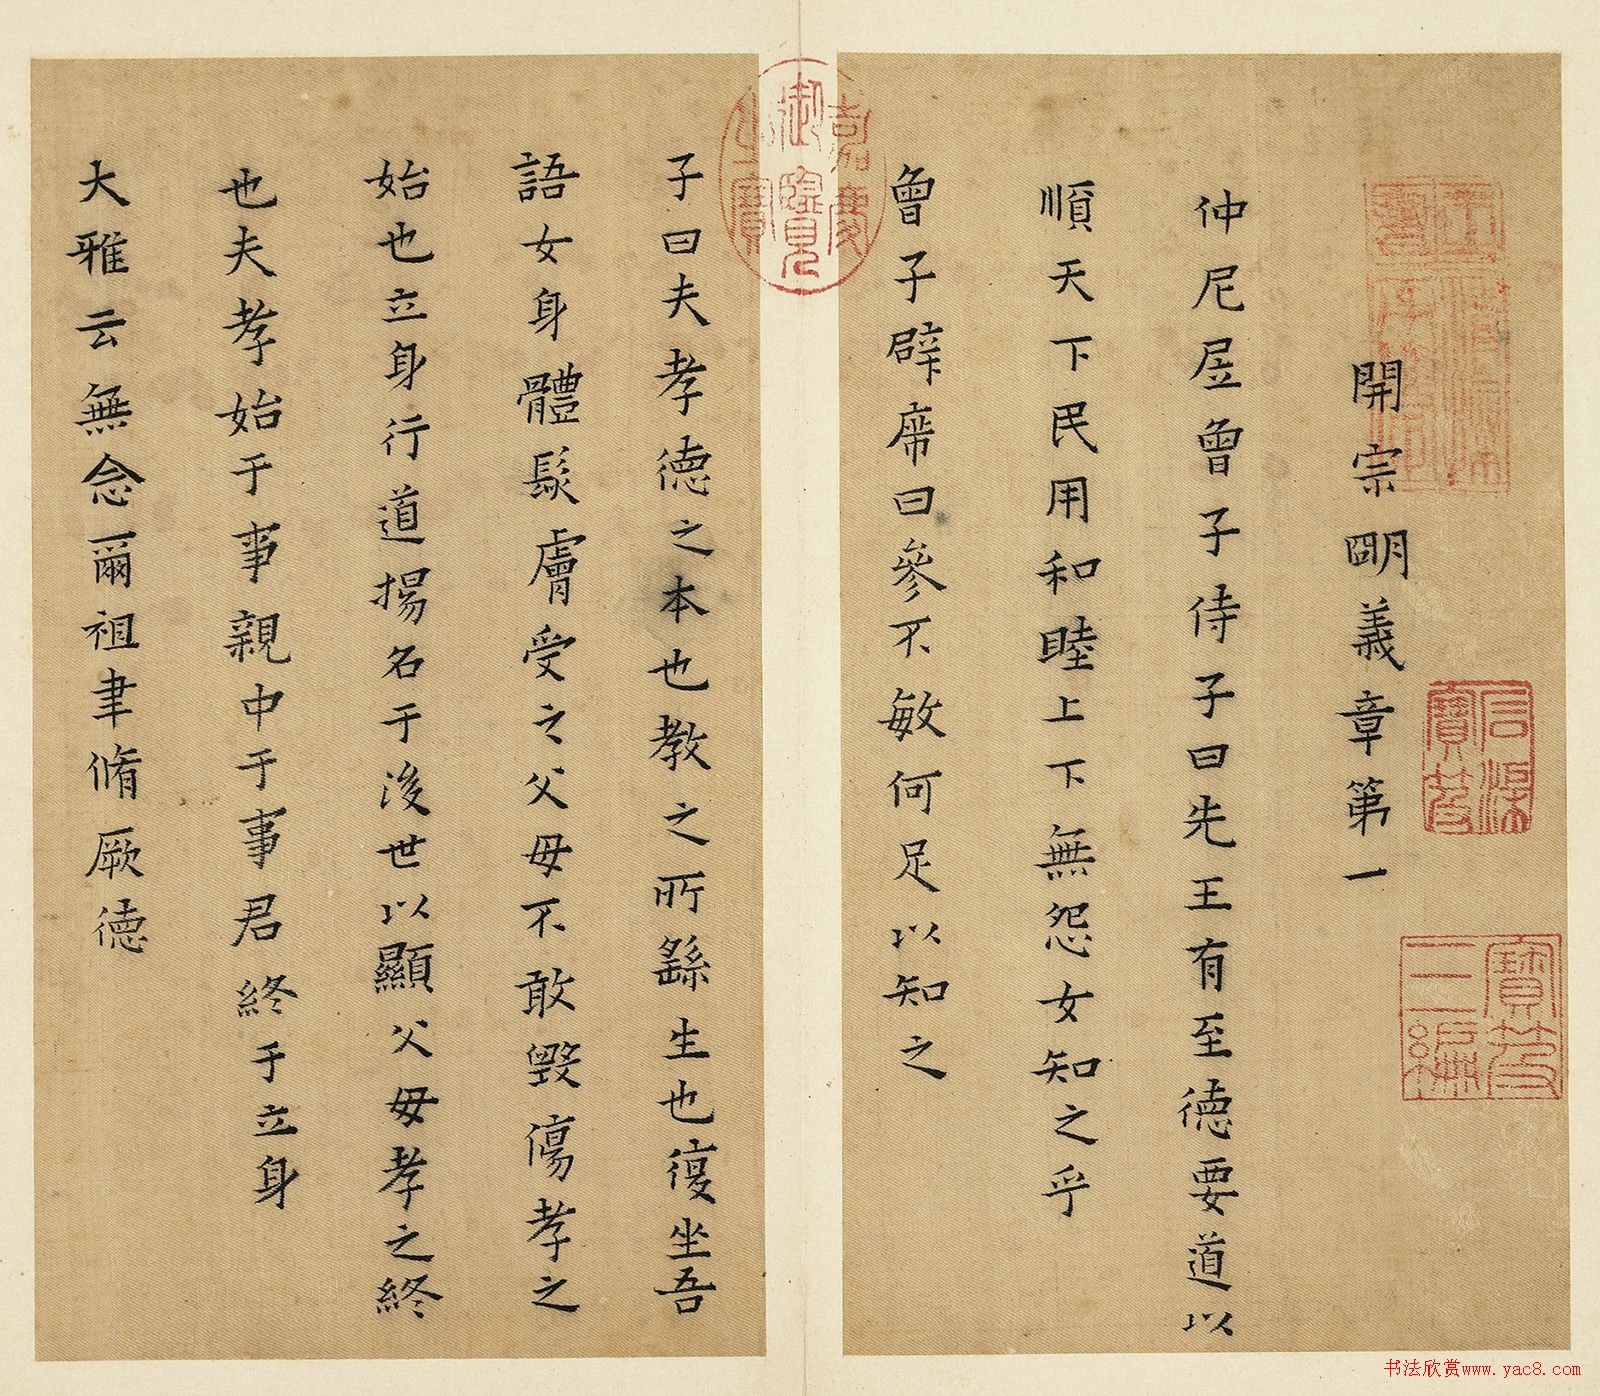 石渠寶笈
寶笈三編
開宗朙義章第一
仲尼居曾子侍子曰先王有至德要道以
順天下民用和睦上下無怨女知之乎
曾子辟席曰參不敏何足以知之
嘉慶御覽之寶
子曰夫孝德之本也教之所繇生也復坐吾
語女身體髮膚受之父母不敢毀傷孝之
始也立身行道揚名于後世以顯父母孝之終
也夫孝始于事親中于事君終于立身
大雅云無念爾祖聿脩厥德
书法欣赏www.yac8.com